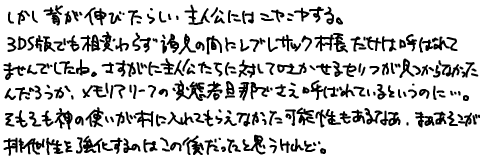 しかし背が伸びたらしい主人公にはニヤニヤする。
3DS版でも相変わらず謁見の間にレブレサック村長だけは呼ばれて
ませんでしたね。さすがに主人公たちに対して吐かせるセリフが見つからなかった
んだろうか、メモリアリーフの変態若旦那でさえ呼ばれているというのに…。
そもそも神の使いが村に入れてもらえなかった可能性もあるなあ、まああそこが
排他性を強化するのはこの後だったと思うけれど。